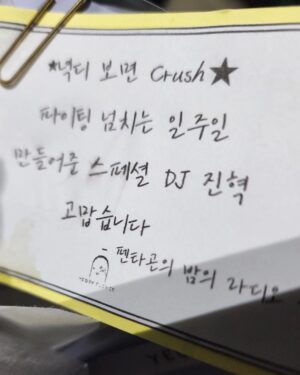 *넉디 보면 Crush★
파이팅 넘치는 일주일
만들어준 스페셜 DJ 진혁
고맙습니다
- 펜타곤의 밤의 라디오